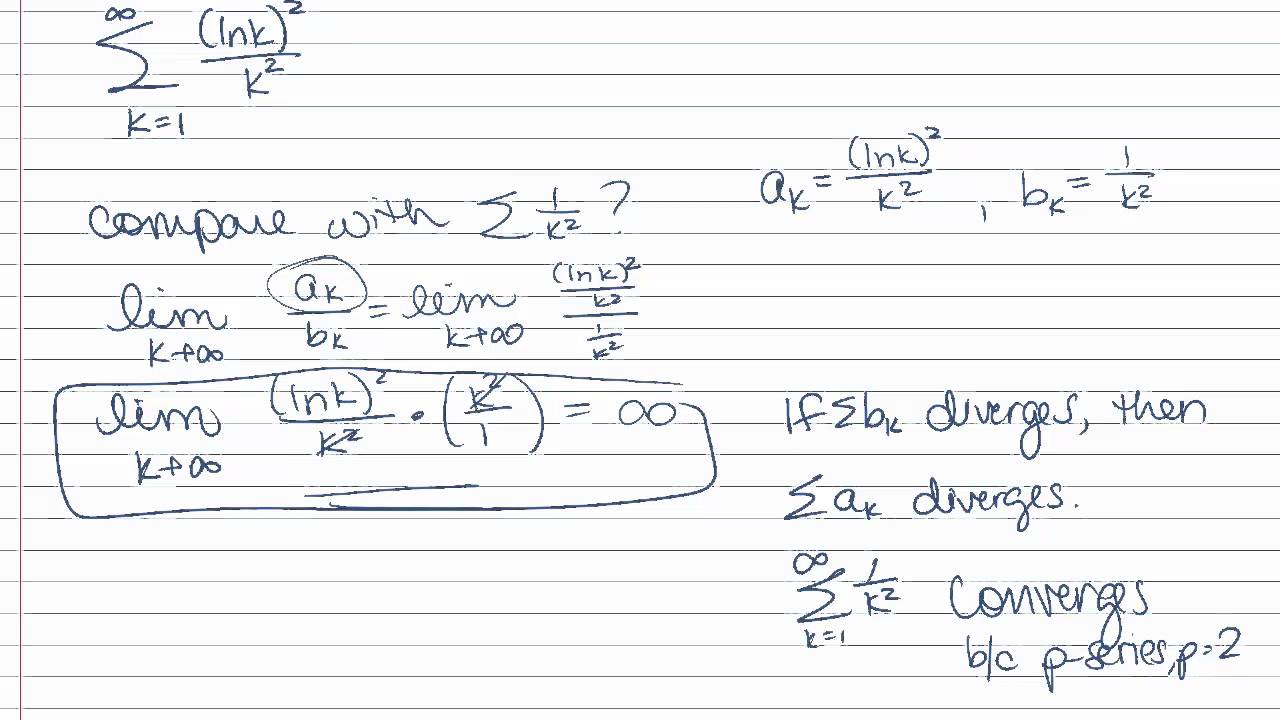 ∞
∑ (ln k)² / k²
k=1
a_k = (ln k)² / k² , b_k = 1/k²
compare with ∑ 1/k² ?
lim k→∞ a_k / b_k = lim k→∞ ((ln k)² / k²) / (1/k²)
lim k→∞ (ln k)² / k² · (k²/1) = ∞
If ∑b_k diverges, then
∑ a_k diverges.
∞
∑ 1/k² converges
k=1
b/c p-series, p=2